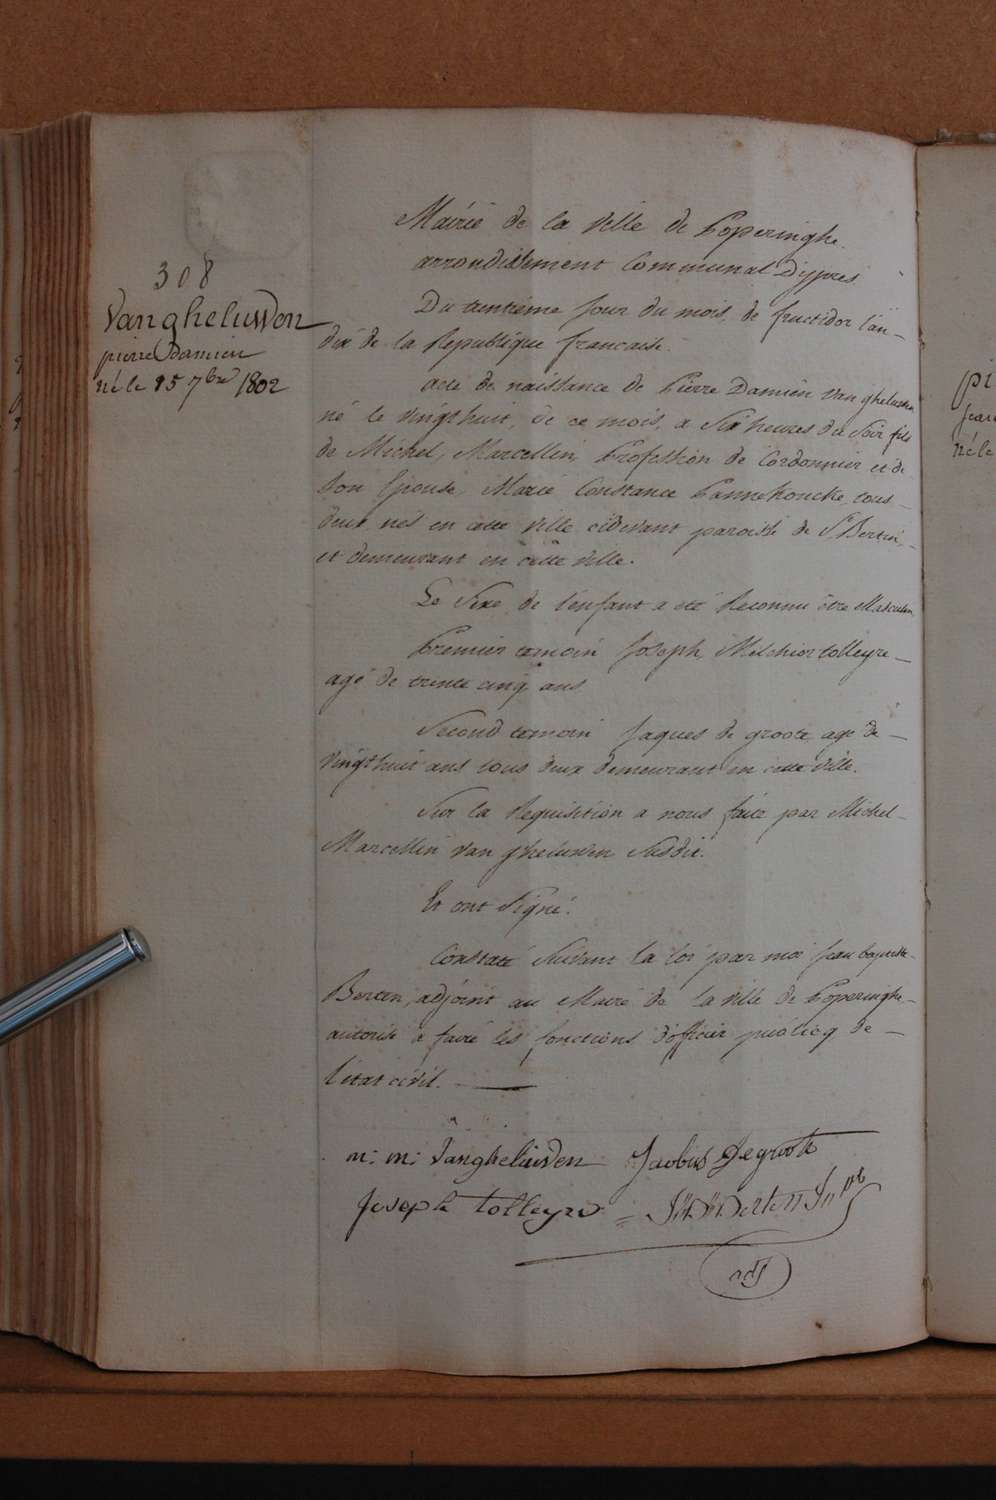 308
Vangheluwen
pierre Damien
né le 15 7bre 1802
Mairie de la ville de Poperinghe
arrondissement Communal Dijpres
Du trentieme Jour du mois de fructidor l'an
dix de la Republique francaise.
acte de naissance de Pierre Damien Van gheluwen
né le vingthuit, de ce mois, a Six heures du Soir fils
de Michel, Marcellin, Profession de Cordonnier et de
Son Epouse, Marie Constance Pannekoucke, tous
deux nés en cette ville cidevant paroisse de St Bertin,
et demeurant en cette ville.
Le Sexe de l'enfant a eté Reconnu être Masculin.
Premier temoin Joseph Melchior tolleyre
agé de trente cinq ans
Second temoin Jaques de groote agé de
vingthuit ans tous deux demeurant en cette ville.
Sur la Requisition a nous faite par Michel
Marcellin Van gheluwen Susdit.
Et ont Signé.
Constaté Suivant la loi par moi Jean baptiste
Berten, adjoint au Maire de la ville de Poperinghe
autorisé a faire les fonctions d'officier publicq de
l'état civil.
m: m: Vangheluwen Jacobus Degroote
Joseph tolleyre = Berten
adj
pi
né le